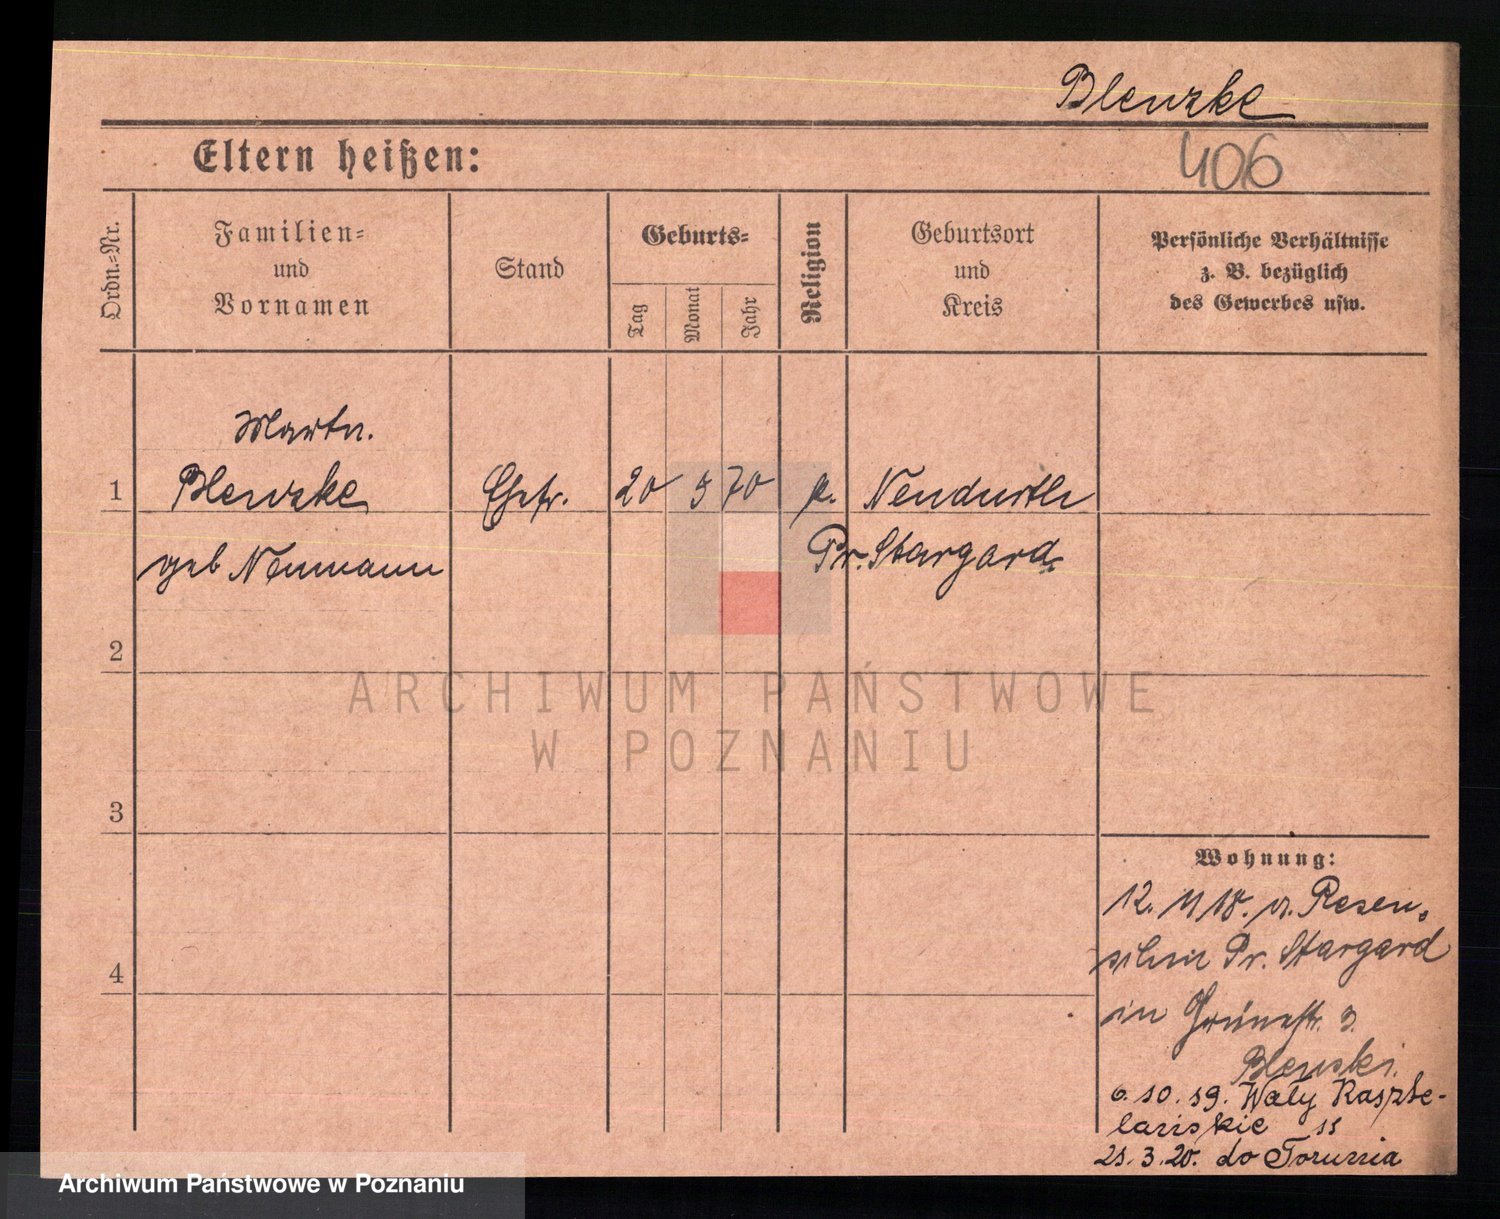 Blenzke
Eltern heißen:
406
Ordn.-Nr.
Familien-
und
Vornamen
Stand
Geburts-
Tag
Monat
Jahr
Religion
Geburtsort
und
Kreis
Persönliche Verhältnisse
z. B. bezüglich
des Gewerbes usw.
Marta.
1 Blenzke Ehefr. 20 3 70 k.
geb Neumann Pr. Stargard.
2
3
4
Wohnung:
12. 11 18. v.
Pr. Stargard
in Grünestr. 3.
Blenski.
6. 10. 19. Wały Kaszte-
lańskie 11
25. 3. 20. do Torunia
ARCHIWUM PAŃSTWOWE
W POZNANIU
Archiwum Państwowe w Poznaniu